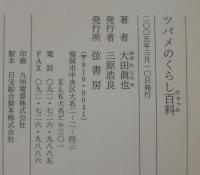 ツバメのくらし百科
ひゃっか
二〇〇五年三月一〇日発行
著者 大田眞也
おおたしんや
発行者 三原浩良
発行所 弦書房
(〒810-0041)
福岡市中央区大名二-二-四三
ELK大名ビル三〇一
電話 〇九二・七二六・九八八五
FAX 〇九二・七二六・九八八六
印刷 九州電算株式会社
製本 日宝綜合製本株式会社